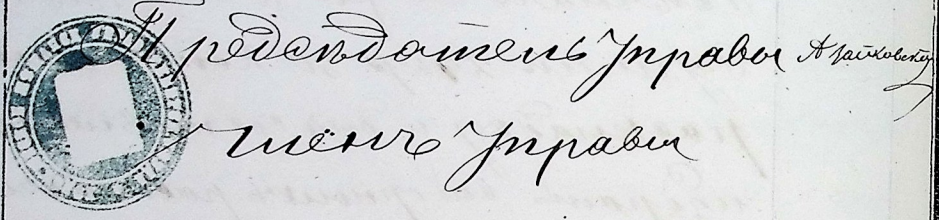 Предсѣдатель Управы А Зайковскій
Членъ Управы